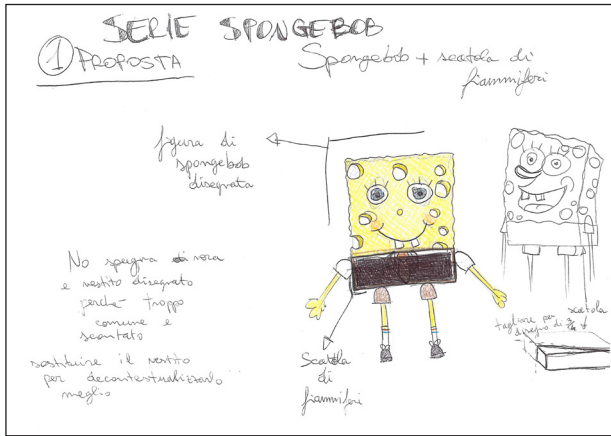 SERIE SPONGEBOB
1 PROPOSTA
Spongebob + scatola di
fiammiferi
figura di
spongebob
disegnata
No spugna vera
e vestito disegnato
perché troppo
comune e
scontato
sostituire il vestito
per decontestualizzarlo
meglio
Scatola
di
fiammiferi
scatola
tagliare per
disegno di 3/4